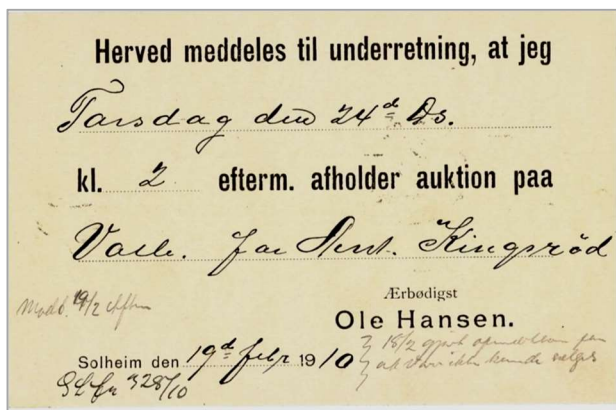 Herved meddeles til underretning, at jeg
Torsdag den 24de Ds.
kl. 2 efterm. afholder auktion paa
Valle. for Kingsrød
Ærbødigst
Ole Hansen.
Modt. 19/2 Aften
Solheim den 19de febr 1910
18/2 gjort
at ikke kunde sælges
328/10